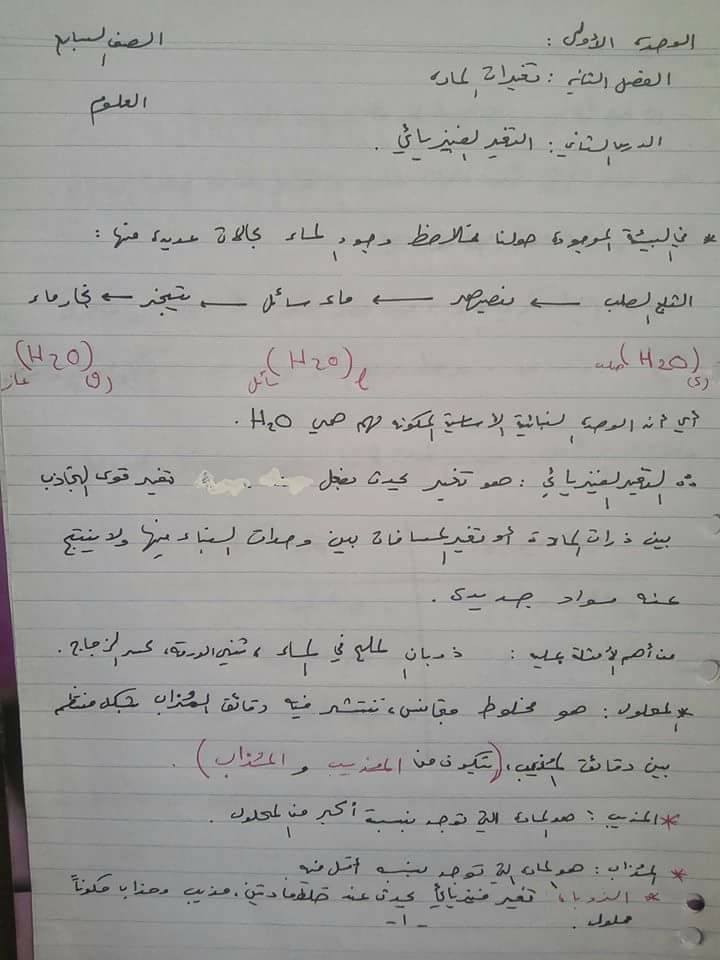 الوحدة الأولى : الصف السابع
الفصل الثاني : تغيرات المادة
العلوم
الدرس الثاني : التغير الفيزيائي .
* في البيئة الموجودة حولنا نلاحظ وجود الماء بحالات عديدة منها :
الثلج الصلب ← ينصهر ← ماء سائل ← يتبخر ← بخار ماء
(H2O)(s) صلب (H2O)l سائل (H2O)(g) غاز
أي أن الوحدة البنائية الأساسية المكونة لهم هي H2O .
التغير الفيزيائي : هو تغير يحدث بفعل تغير قوى التجاذب
بين ذرات المادة أو تغير المسافات بين وحدات البناء فيها ولا ينتج
عنه مواد جديدة .
من أهم الأمثلة عليه : ذوبان الملح في الماء ، ثني الورقة ، كسر الزجاج .
* المحلول : هو مخلوط متجانس ، تنتشر فيه دقائق المُذاب بشكل منتظم
بين دقائق المذيب ، (يتكون من المذيب و المُذاب) .
* المذيب : هو المادة التي توجد بنسبة أكبر من المحلول .
* المُذاب : هو المادة التي توجد بنسبة أقل منه
* الذوبان تغير فيزيائي يحدث عند خلط مادتين ، مذيب ومذاب مكوناً
محلول .
-١-